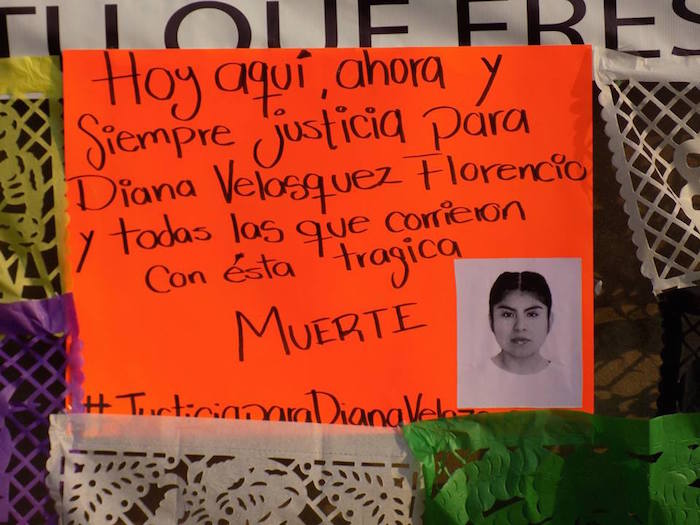 TU QUE ERES
Hoy aquí, ahora y
Siempre justicia para
Diana Velasquez Florencio
y todas las que corrieron
con ésta tragica
MUERTE
#JusticiaparaDianaVelaz